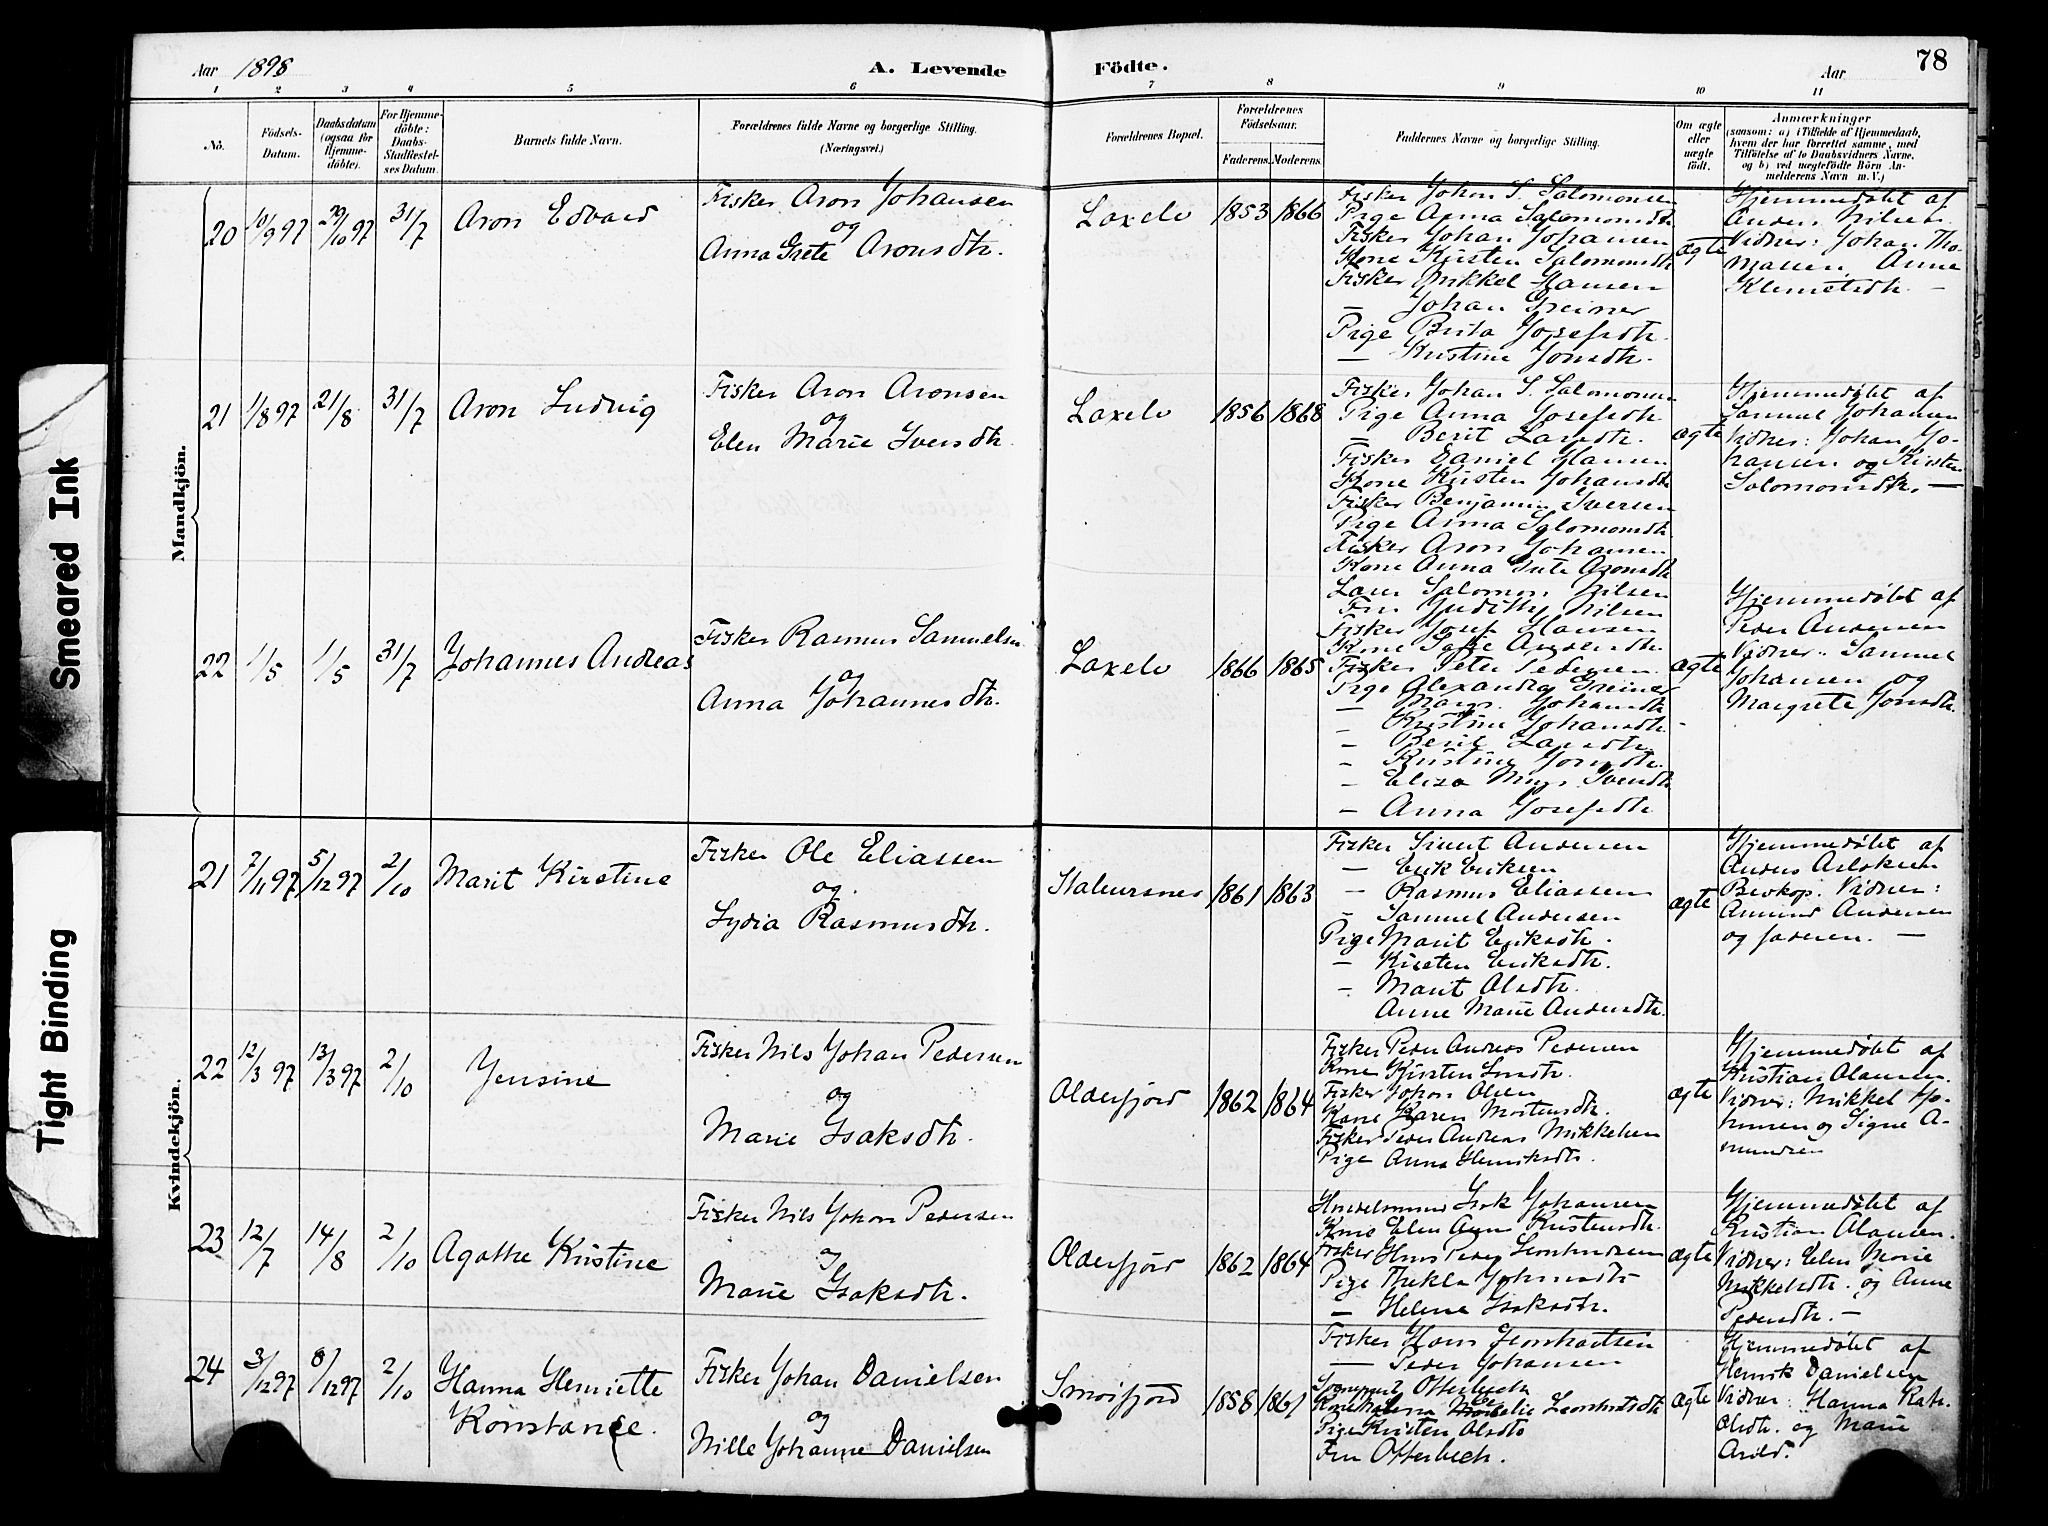 Aar 1898
A. Levende
Födte.
Aar
78
1 2 3 4 5 6 7 8 9 10 11
No.
Födsels-
Datum.
Daabsdatum
(ogsaa for
Hjemme-
döbte).
For Hjemme-
döbte:
Daabs-
Stadfæstel-
ses Datum.
Barnets fulde Navn.
Forældrenes fulde Navne og borgerlige Stilling.
(Næringsvei.)
Forældrenes Bopæl.
Forældrenes
Födselsaar.
Faderens. Moderens.
Faddernes Navne og borgerlige Stilling.
Om ægte
eller
uægte
födt.
Anmærkninger
(saasom: a) i Tilfælde af Hjemmedaab,
hvem der har forrettet samme, med
Tilföielse af to Daabsvidners Navne,
og b) ved uægtefödte Börn An-
melderens Navn m. V.)
Mandkjön.
20 10/9 97 29/10 97 31/7 Aron Edvard
Fisker Aron Johansen
og
Anna Grete Aronsdtr.
Laxelv 1853 1866
Fisker Johan S. Salomonsen
Pige Anna Salomonsdtr
Fisker Johan Johansen
Kone Kirsten Salomonsdtr
Fisker Mikkel Hansen
— Johan Greiner
Pige Brita Josefsdtr.
— Kristine Jonsdtr.
ægte
Hjemmedøbt af
Anders Nilsen.
Vidner: Johan Tho-
massen, Anne
Klemetsdtr. —
21 1/8 97 21/8 31/7 Aron Ludvig
Fisker Aron Aronsen
og
Elen Marie Iversdtr.
Laxelv 1856 1868
Fisker Johan S. Salomonsen
Pige Anna Josefsdtr.
— Berit Larsdtr.
Fisker Daniel Hansen
Kone Kirsten Johansdtr
Fisker Benjamin Iversen
Pige Anna Salomonsdtr.
Fisker Aron Johansen
Kone Anna Grete Aronsdtr
ægte
Hjemmedøbt af
Samuel Johansen
Vidner: Johan Jo-
hansen og Kirsten
Salomonsdtr. —
22 1/5 1/5 31/7 Johannes Andreas
Fisker Rasmus Samuelsen
og
Anna Johannesdtr.
Laxelv 1866 1865
Salomon Nilsen
Fru Judithy Nilsen
Fisker Josef Hansen
Kone Andersdtr.
Fisker Peter Pedersen
Pige Alexandra Greiner
— Johansdtr
— Kristine Johansdtr.
— Berit Larsdtr.
— Kristine Jonsdtr.
— Eliza Iversdtr
— Anna Josefsdtr
ægte
Hjemmedøbt af
Peder Andersen
Vidner: Samuel
Johansen og
Margrete Jonsdtr.
Kvindekjön.
21 7/11 97 5/12 97 2/10 Marit Kirstine
Fisker Ole Eliassen
og
Lydia Rasmusdtr.
Stabursnes 1861 1863
Fisker Simut Andersen
— Erik Eriksen
— Rasmus Eliassen
— Samuel Andersen
Pige Marit Eriksdtr.
— Kirsten Eriksdtr.
— Marit Olsdtr.
Anne Marie Andersdtr.
ægte
Hjemmedøbt af
Anders Aslaksen
Beskop. Vidner:
Amund Andersen
og faderen. —
22 12/3 97 13/3 97 2/10 Jensine
Fisker Nils Johan Pedersen
og
Marie Isaksdtr.
Olderfjord 1862 1864
Fisker Peder Andreas Pedersen
Kone Kirsten
Fisker Johan Olsen
Kone Karen Mortensdtr.
Fisker Peder Andreas Mikkelsen
Pige Anna Henriksdtr.
ægte
Hjemmedøbt af
Kristian Olausen.
Vidner: Mikkel Jo-
hansen og Signe A-
mundsen
23 12/7 14/8 2/10 Agathe Kristine
Fisker Nils Johan Pedersen
og
Marie Isaksdtr.
Olderfjord 1862 1864
Handelsmand Isak Johansen
Kone Elen Anne Kristensdtr.
Fisker Hans Peder Leonhardsen
Pige Thekla Johansdtr
— Helene Isaksdtr.
ægte
Hjemmedøbt af
Kristian Olausen.
Vidner: Elen Marie
Mikkelsdtr. og Anne
Pedersdtr. —
24 3/12 97 8/12 97 2/10 Hanna Henriette
Konstance.
Fisker Johan Danielsen
og
Nille Johanne Danielsen
Smørfjord 1858 1861
Fisker Hans Leonhardsen
— Peder Johansen
Otterbech
Kone Leonhardsdtr
Pige Kirsten Olsdtr
Fru Otterbech.
ægte
Hjemmedøbt af
Henrik Danielsen
Vidner: Hanna Kath.
Olsdtr. og Marie
Arild.
Smeared Ink
Tight Binding